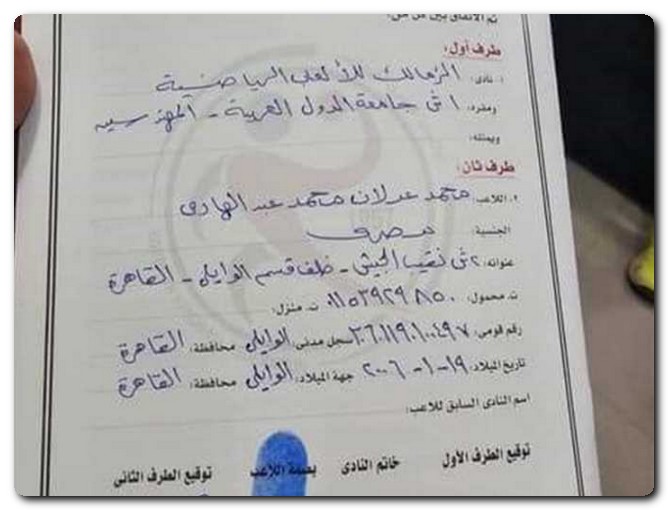 تم الاتفاق بين كل من:
طرف أول:
١. نادى: الزمالك للألعاب الرياضية
ومقره: ١ ش جامعة الدول العربية - المهندسين
ويمثله:
طرف ثان:
٢. اللاعب: محمد عدلان محمد عبد الهادى
الجنسية: مصرى
عنوانه: ٢ ش نقيب الجيش - خلف قسم الوايلى - القاهرة
ت. محمول: ٠١١٥٣٩٢٩٨٥٠ ت. منزل:
رقم قومى: ٣٠٦٠١١٩٠١٠٠٤٩٧ سجل مدنى: الوايلى محافظة: القاهرة
تاريخ الميلاد: ١٩-١-٢٠٠٦ جهة الميلاد: الوايلى محافظة: القاهرة
اسم النادى السابق للاعب:
توقيع الطرف الأول خاتم النادى بصمة اللاعب توقيع الطرف الثانى